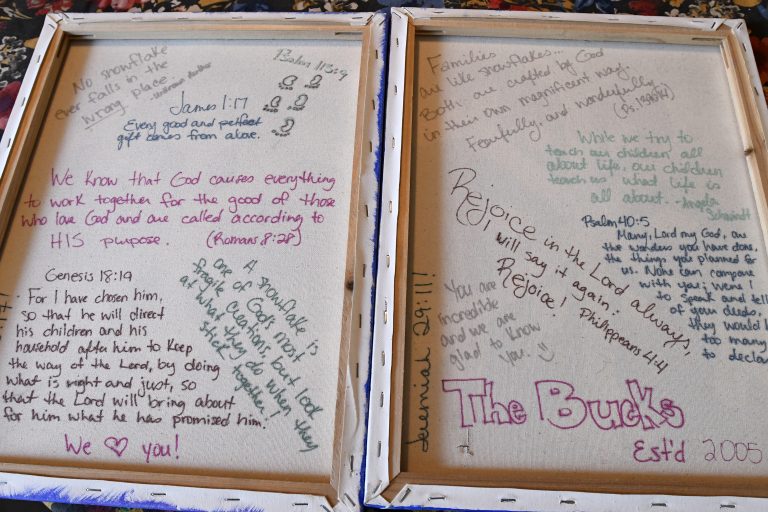 No snowflake
ever falls in the
wrong place.
Psalm 113:9
James 1:17
Every good and perfect
gift comes from above.
We know that God causes everything
to work together for the good of those
who love God and are called according to
HIS purpose. (Romans 8:28)
Genesis 18:19
For I have chosen him,
so that he will direct
his children and his
household after him to keep
the way of the Lord, by doing
what is right and just, so
that the Lord will bring about
for him what he has promised him.
A snowflake is
one of God's most
fragile creations, but look
at what they do when they
stick together!
We ♡ you!
Families
are like snowflakes...
Both are crafted by God
in their own magnificent way.
Fearfully, and wonderfully.
While we try to
teach our children all
about life, our children
teach us what life is
all about. -Angela
Schwindt
Rejoice in the Lord always,
I will say it again:
Rejoice!
Philippians 4:4
Psalm 40:5
Many, Lord my God, are
the wonders you have done,
the things you planned for
us. None can compare
with you; were I
to speak and tell
of your deeds,
they would
too many
to declare
You are
incredible
and we are
glad to know
you. :)
Jeremiah 29:11!
The Bucks
Est'd 2005